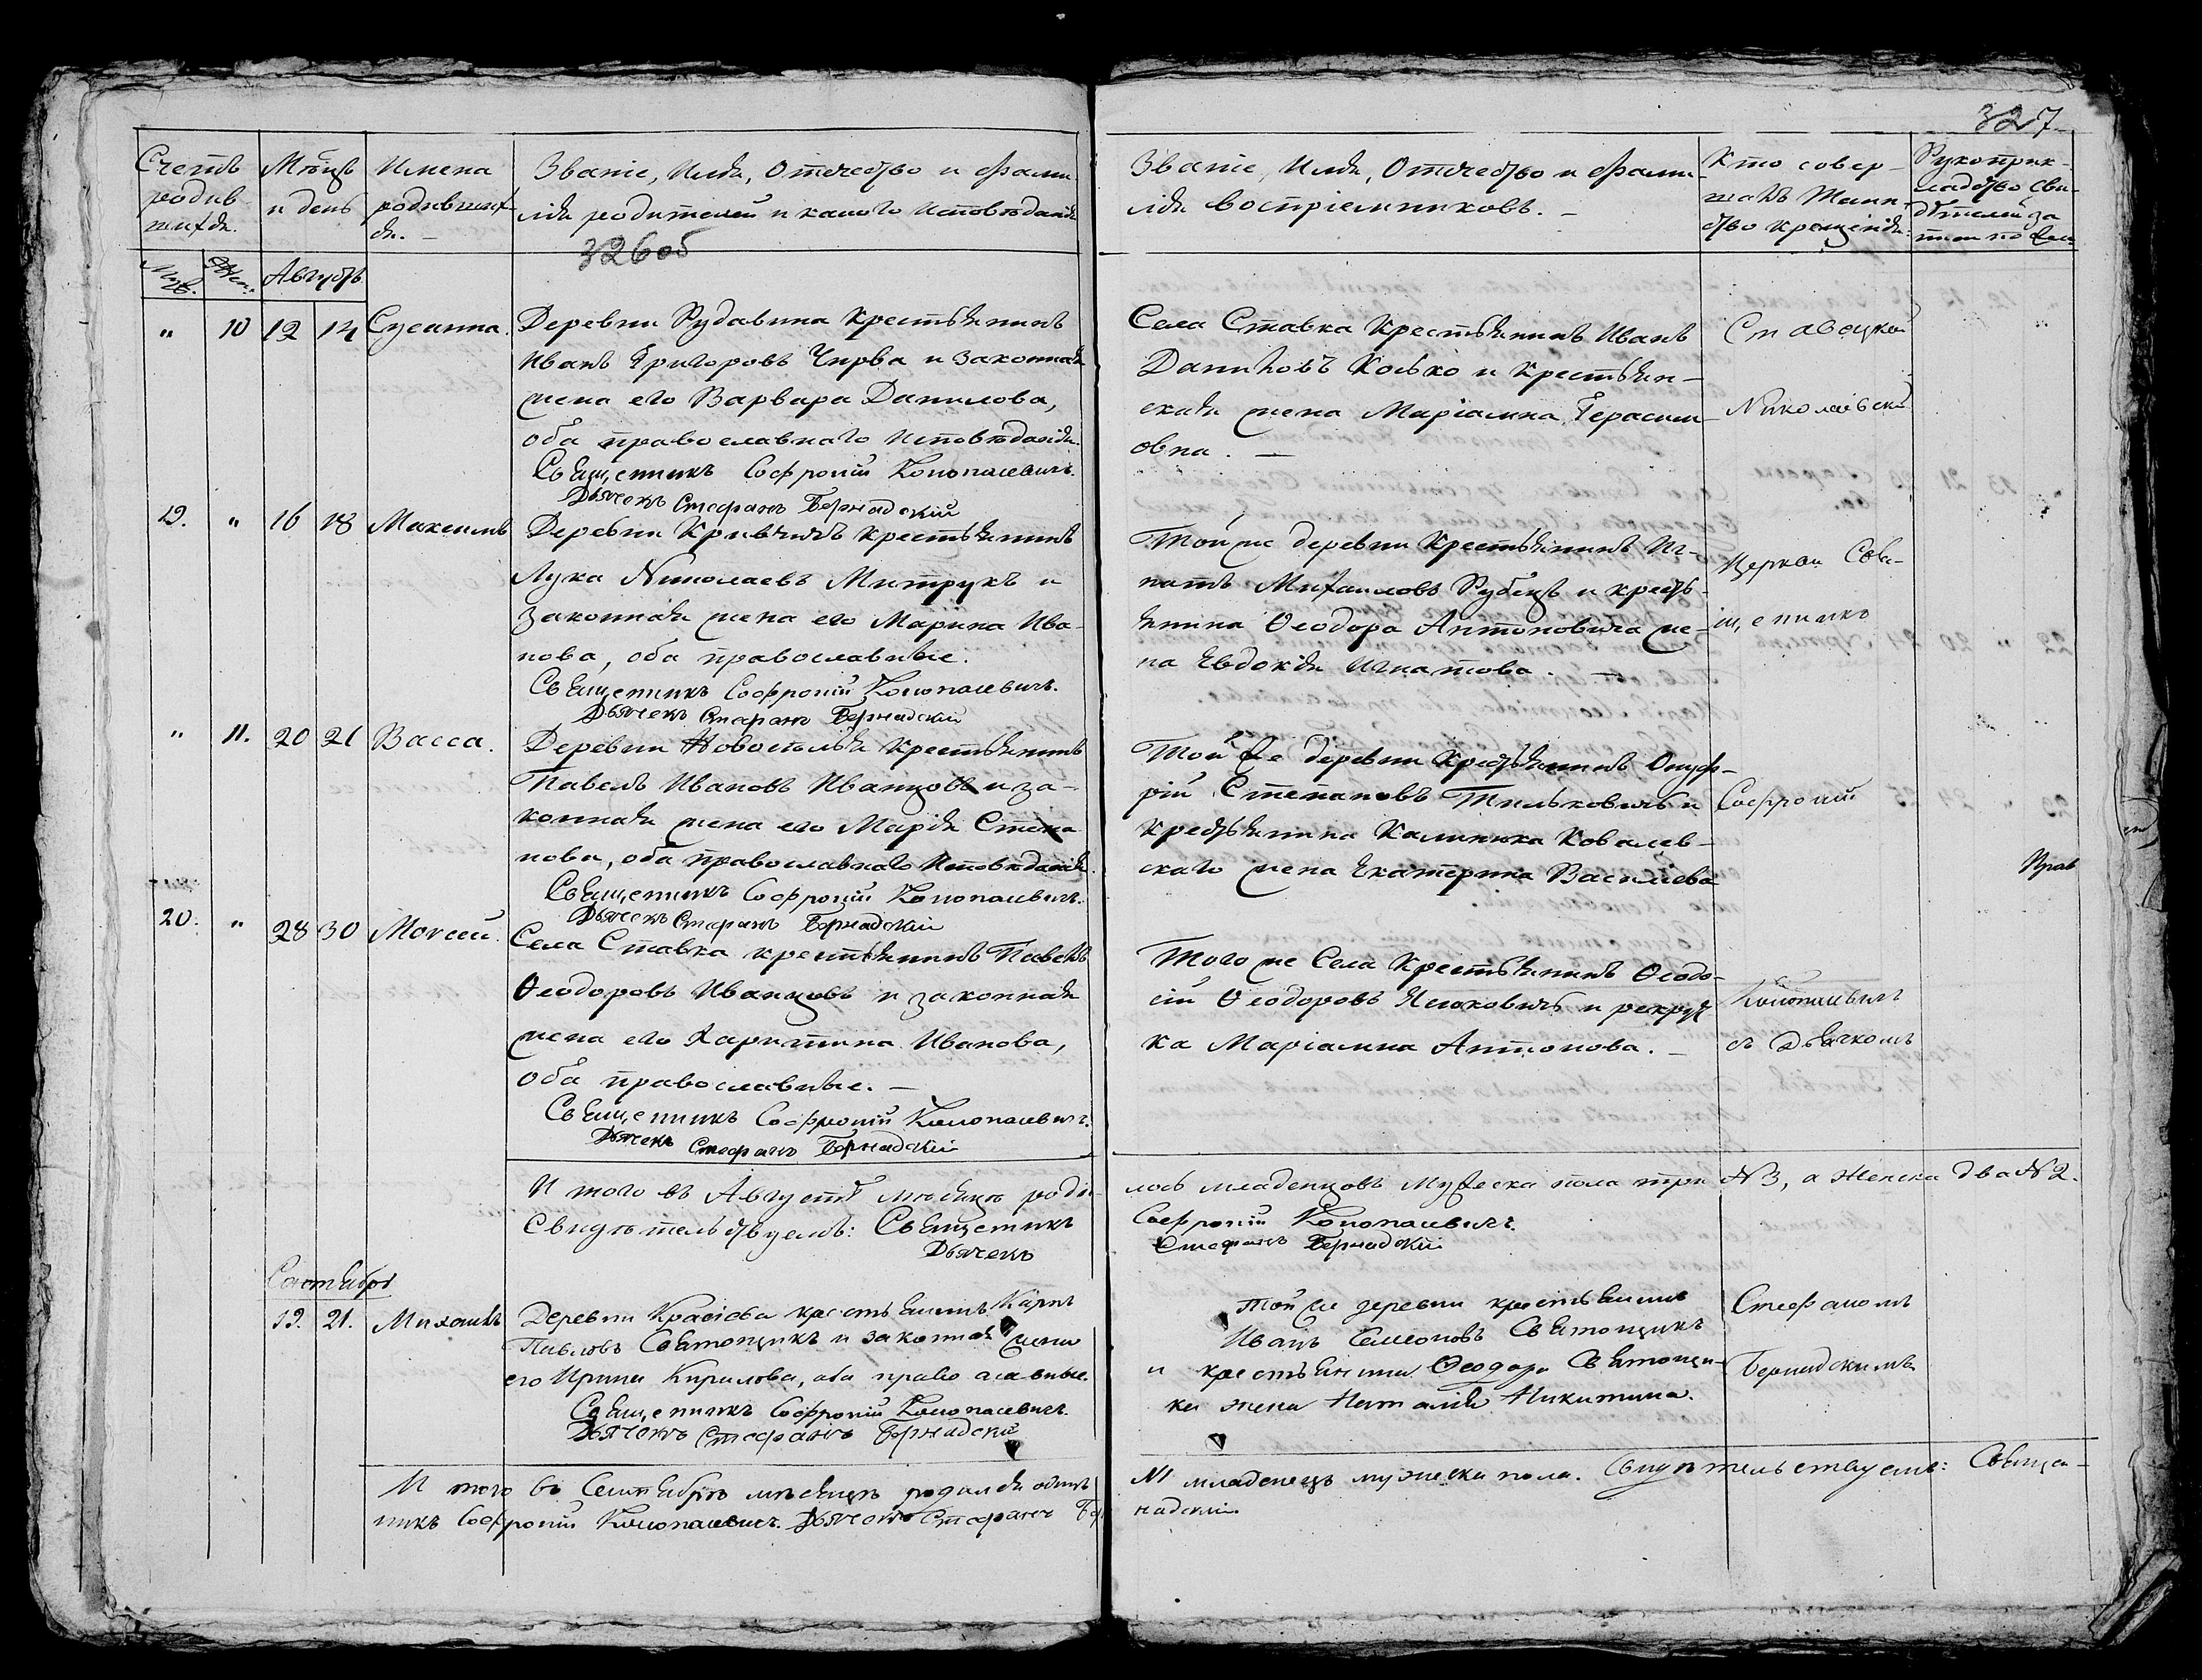 327
Счетъ родив шихся.
Мѣсяцъ и день
Имена родивших ся. —
Званіе, Имя, Отчество и Фами
лія родителей и какого исповѣданія
326 об
Званіе, Имя, Отчество и Фами
лія воспріемниковъ. —
Кто совер-
шалъ Таин-
ство крещенія:
Рукоприк-
ладство сви-
дѣтелей за
писи по жел
Муж. Жен. Августъ
" 10 12 14 Сусанна.
Деревни Рудавина крестьянинъ
Иванъ Григоровъ Чирва и законная
жена его Варвара Данилова,
оба православнаго исповѣданія.
Священникъ Софроній Конопасевичъ.
Дьячекъ Стефанъ Бернадскій
Села Ставка Крестьянинъ Иванъ
Даниловъ Колько и крестьян-
ская жена Маріамна Герасим
овна. —
Ставецкой
Николаевской
19. " 16 18 Максимъ
Деревни Кривчичъ крестьянинъ
Лука Николаевъ Митрукъ и
законная жена его Марина Ива-
нова, оба православные.
Священникъ Софроній Конопасевичъ.
Дьячекъ Стефанъ Бернадскій
Той же деревни Крестьянинъ Иг-
натъ Михаиловъ Рубецъ и кресть-
янина Ѳеодора Антоновича же-
на Евдокія Игнатова. —
Церкви Свя-
щенникъ
" 11. 20 21 Васса.
Деревни Новоселья крестьянинъ
Павелъ Ивановъ Иванцовъ и за-
конная жена его Марія Степа
нова, оба православнаго исповѣданія.
Священникъ Софроній Конопасевичъ.
Дьячекъ Стефанъ Бернадскій
Той же деревни Крестьянинъ Онуф-
рій Степановъ Тильковичъ и
крестьянина Калиника Ковалев-
скаго жена Екатерина Василиева
Софроній
20. " 28 30 Моисей.
Села Ставка крестьянинъ Павелъ
Ѳеодоровъ Иванцовъ и законная
жена его Харитина Иванова,
оба православные. —
Священникъ Софроній Конопасевичъ.
Дьячекъ Стефанъ Бернадскій
Того же Села Крестьянинъ Ѳеодо-
сій Ѳеодоровъ Ясюковичъ и рекрут
ка Маріамна Антонова. —
Конопасевичъ
съ Дьячкомъ
И того въ Августѣ мѣсяцѣ роди-
лось младенцовъ Мужеска пола три N 3, а Женска два N 2.
Свидѣтельствуемъ: Священникъ
Софроній Конопасевичъ.
Дьячекъ
Стефанъ Бернадскій
Сентябрь
19. 21. Михаилъ
Деревни Красіева крестьянинъ Карпъ
Павловъ Святощикъ и законная жена
его Ирина Кирилова, оба православные.
Священникъ Софроній Конопасевичъ.
Дьячекъ Стефанъ Бернадскій
Той же деревни крестьянинъ
Иванъ Семеновъ Святощикъ
и крестьянина Ѳеодора Святощи-
ка жена Наталія Никитина.
Стефаномъ
Бернадскимъ
И того въ Сентябрѣ мѣсяцѣ родился одинъ
N1 младенецъ мужеска пола. Свидѣтельствуемъ: Священ-
никъ Софроній Конопасевичъ. Дьячекъ Стефанъ Бер
надскій